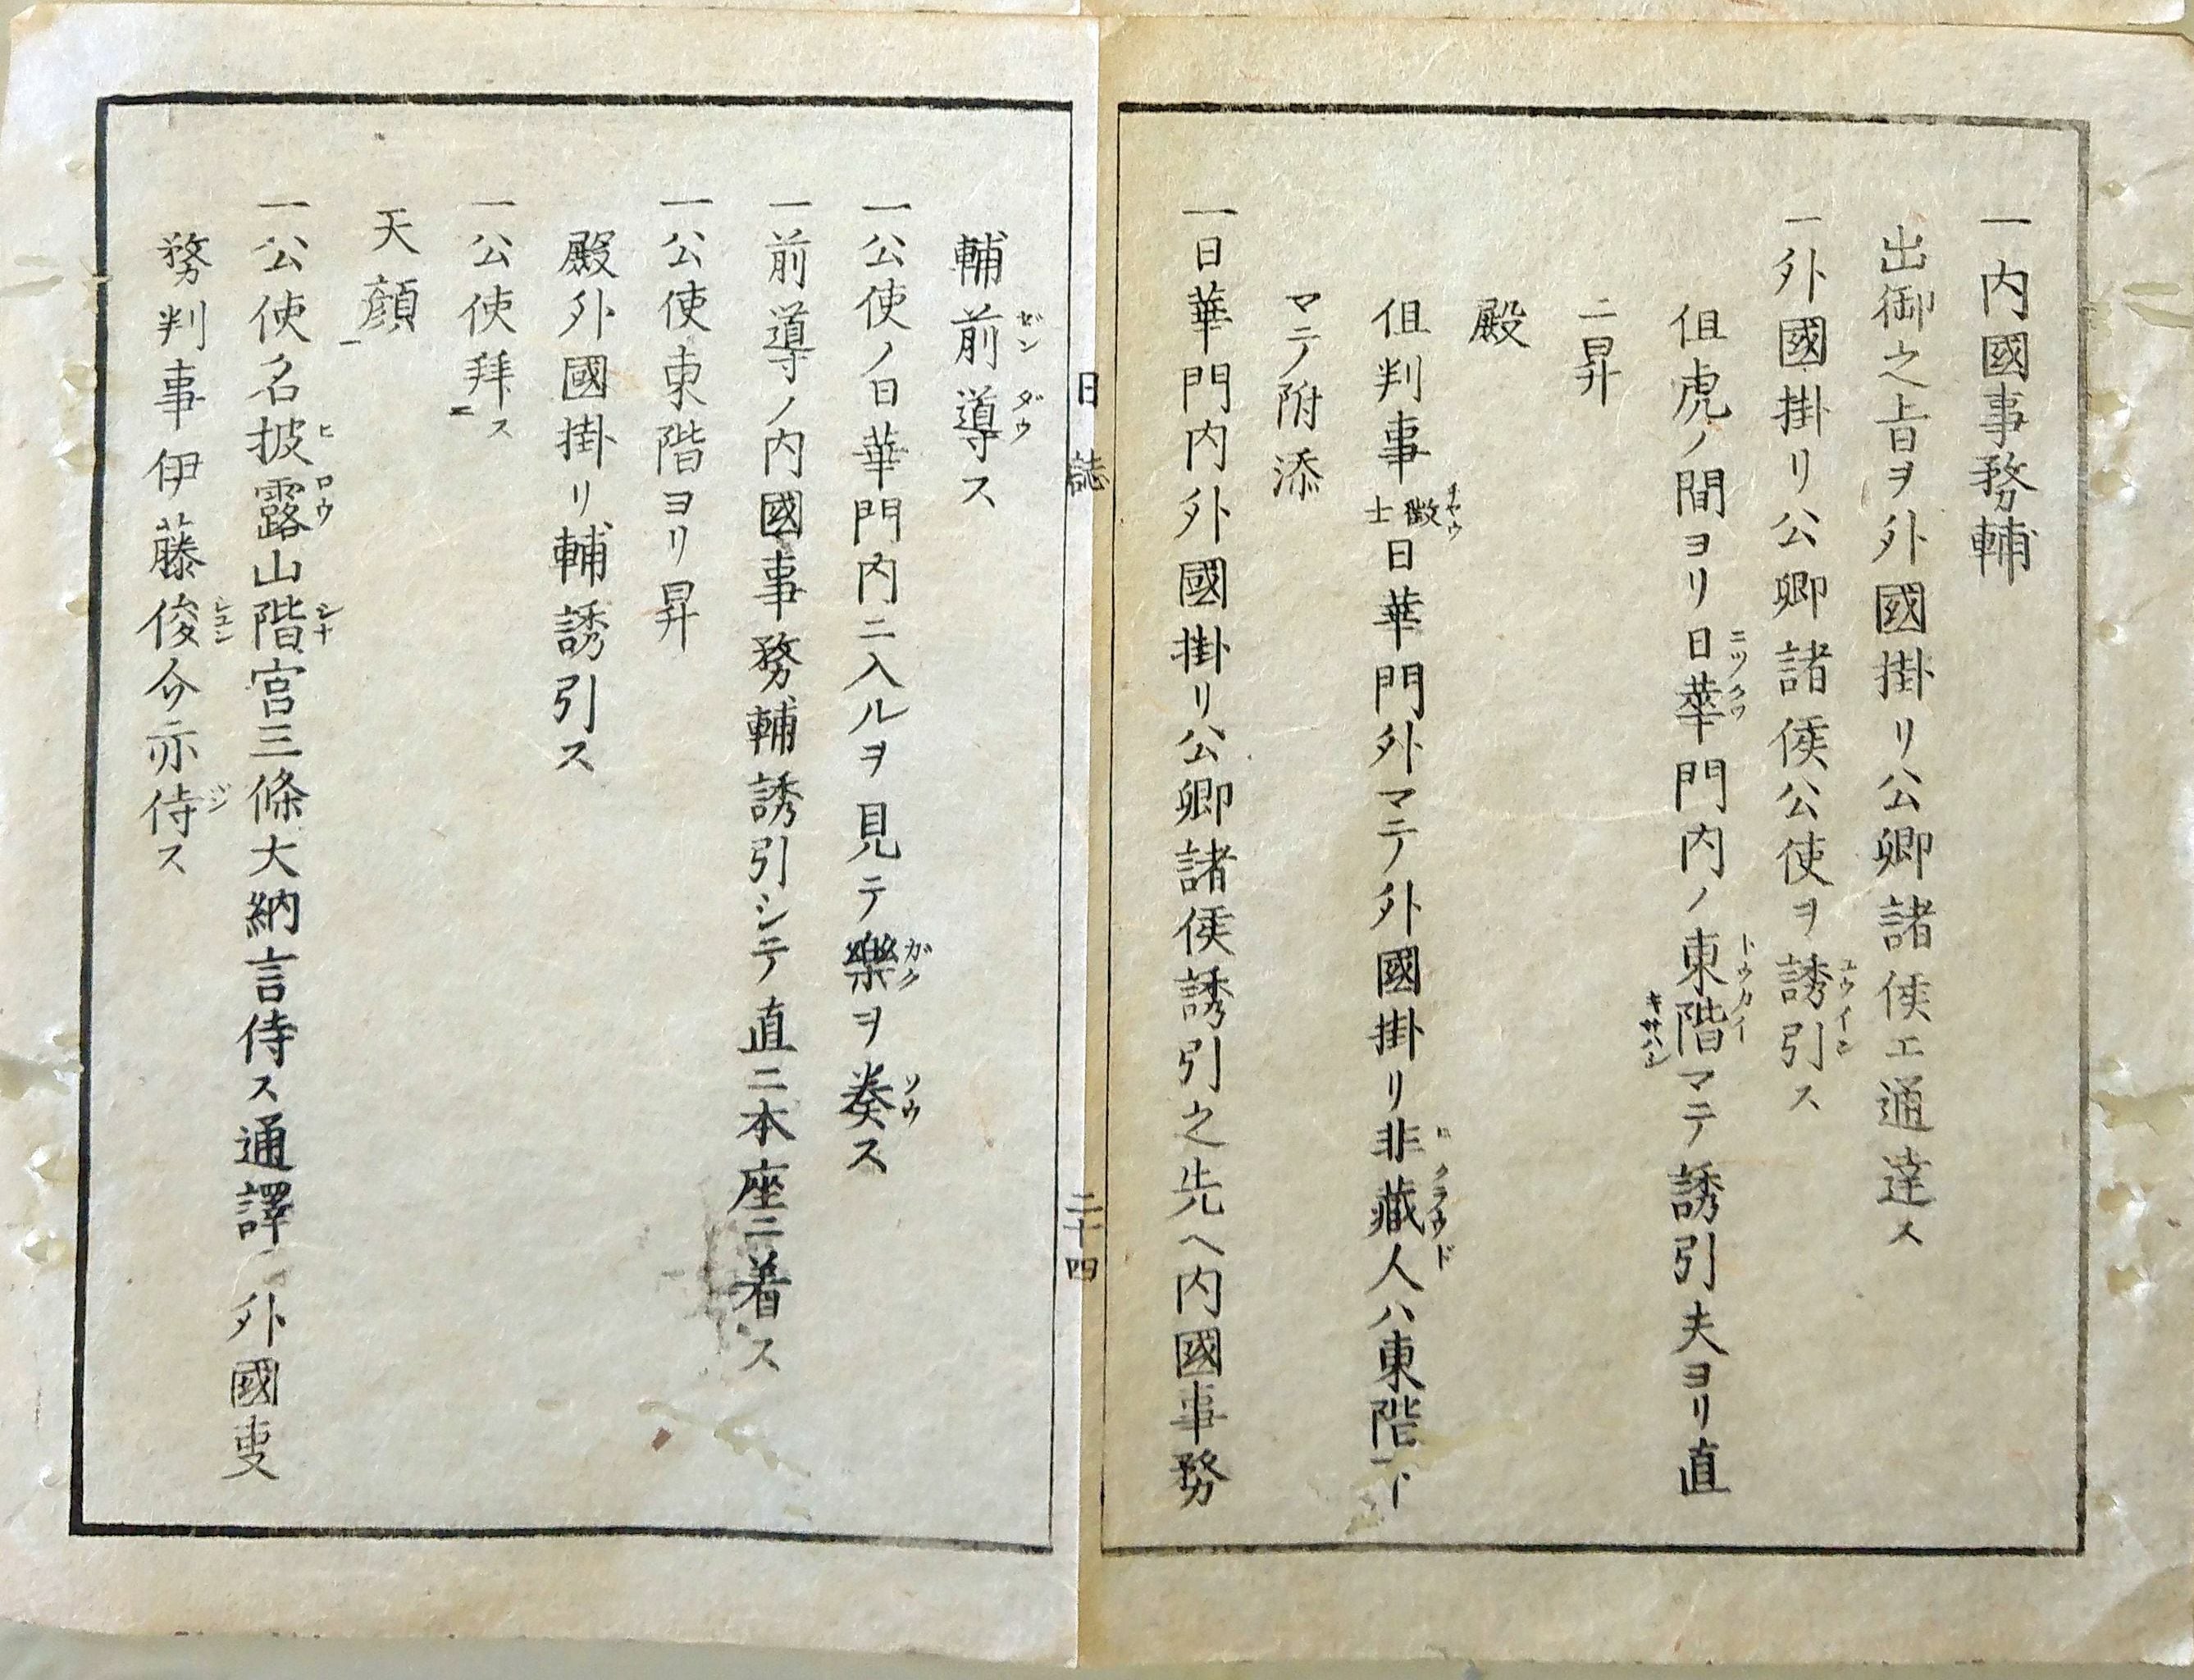 一内國事務輔
出御之旨ヲ外國掛リ公卿諸侯エ通達ス
一外國掛リ公卿諸侯公使ヲ誘引ス
ユウイン
但虎ノ間ヨリ日華門内ノ東階マテ誘引夫ヨリ直
ニツクワ
トウカイ
キサハシ
ニ昇
殿
但判事徴士日華門外マテ外國掛リ非藏人ハ東階下
チヤウ
クラウド
マテ附添
一日華門内外國掛リ公卿諸侯誘引之先ヘ内國事務
日誌
二十四
輔前導ス
ゼンダウ
一公使ノ日華門内ニ入ルヲ見テ樂ヲ奏ス
ガク
ソウ
一前導ノ内國事務輔誘引シテ直ニ本座ニ着ス
一公使東階ヨリ昇
殿外國掛リ輔誘引ス
一公使拜ス
天顔
一公使名披露山階宮三條大納言侍ス通譯ノ外國叓
ヒロウ
シナ
務判事伊藤俊介亦侍ス
シユン
ジ